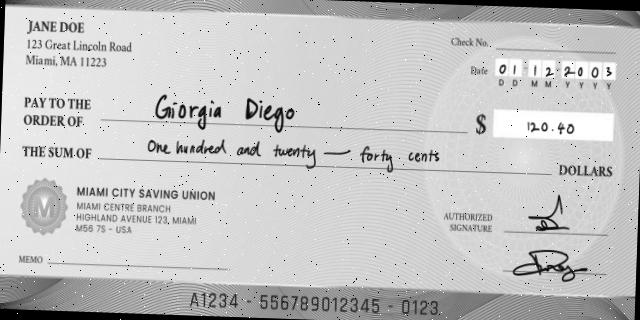 JANE DOE
123 Great Lincoln Road
Miami, MA 11223
Check No.
Date 01 12 2003
D D M M Y Y Y Y
PAY TO THE
ORDER OF Giorgia Diego
$ 120.40
THE SUM OF One hundred and twenty — forty cents DOLLARS
M
MIAMI CITY SAVING UNION
MIAMI CENTRE BRANCH
HIGHLAND AVENUE 123, MIAMI
M56 7S - USA
AUTHORIZED
SIGNATURE
MEMO
A1234 - 556789012345 - 0123